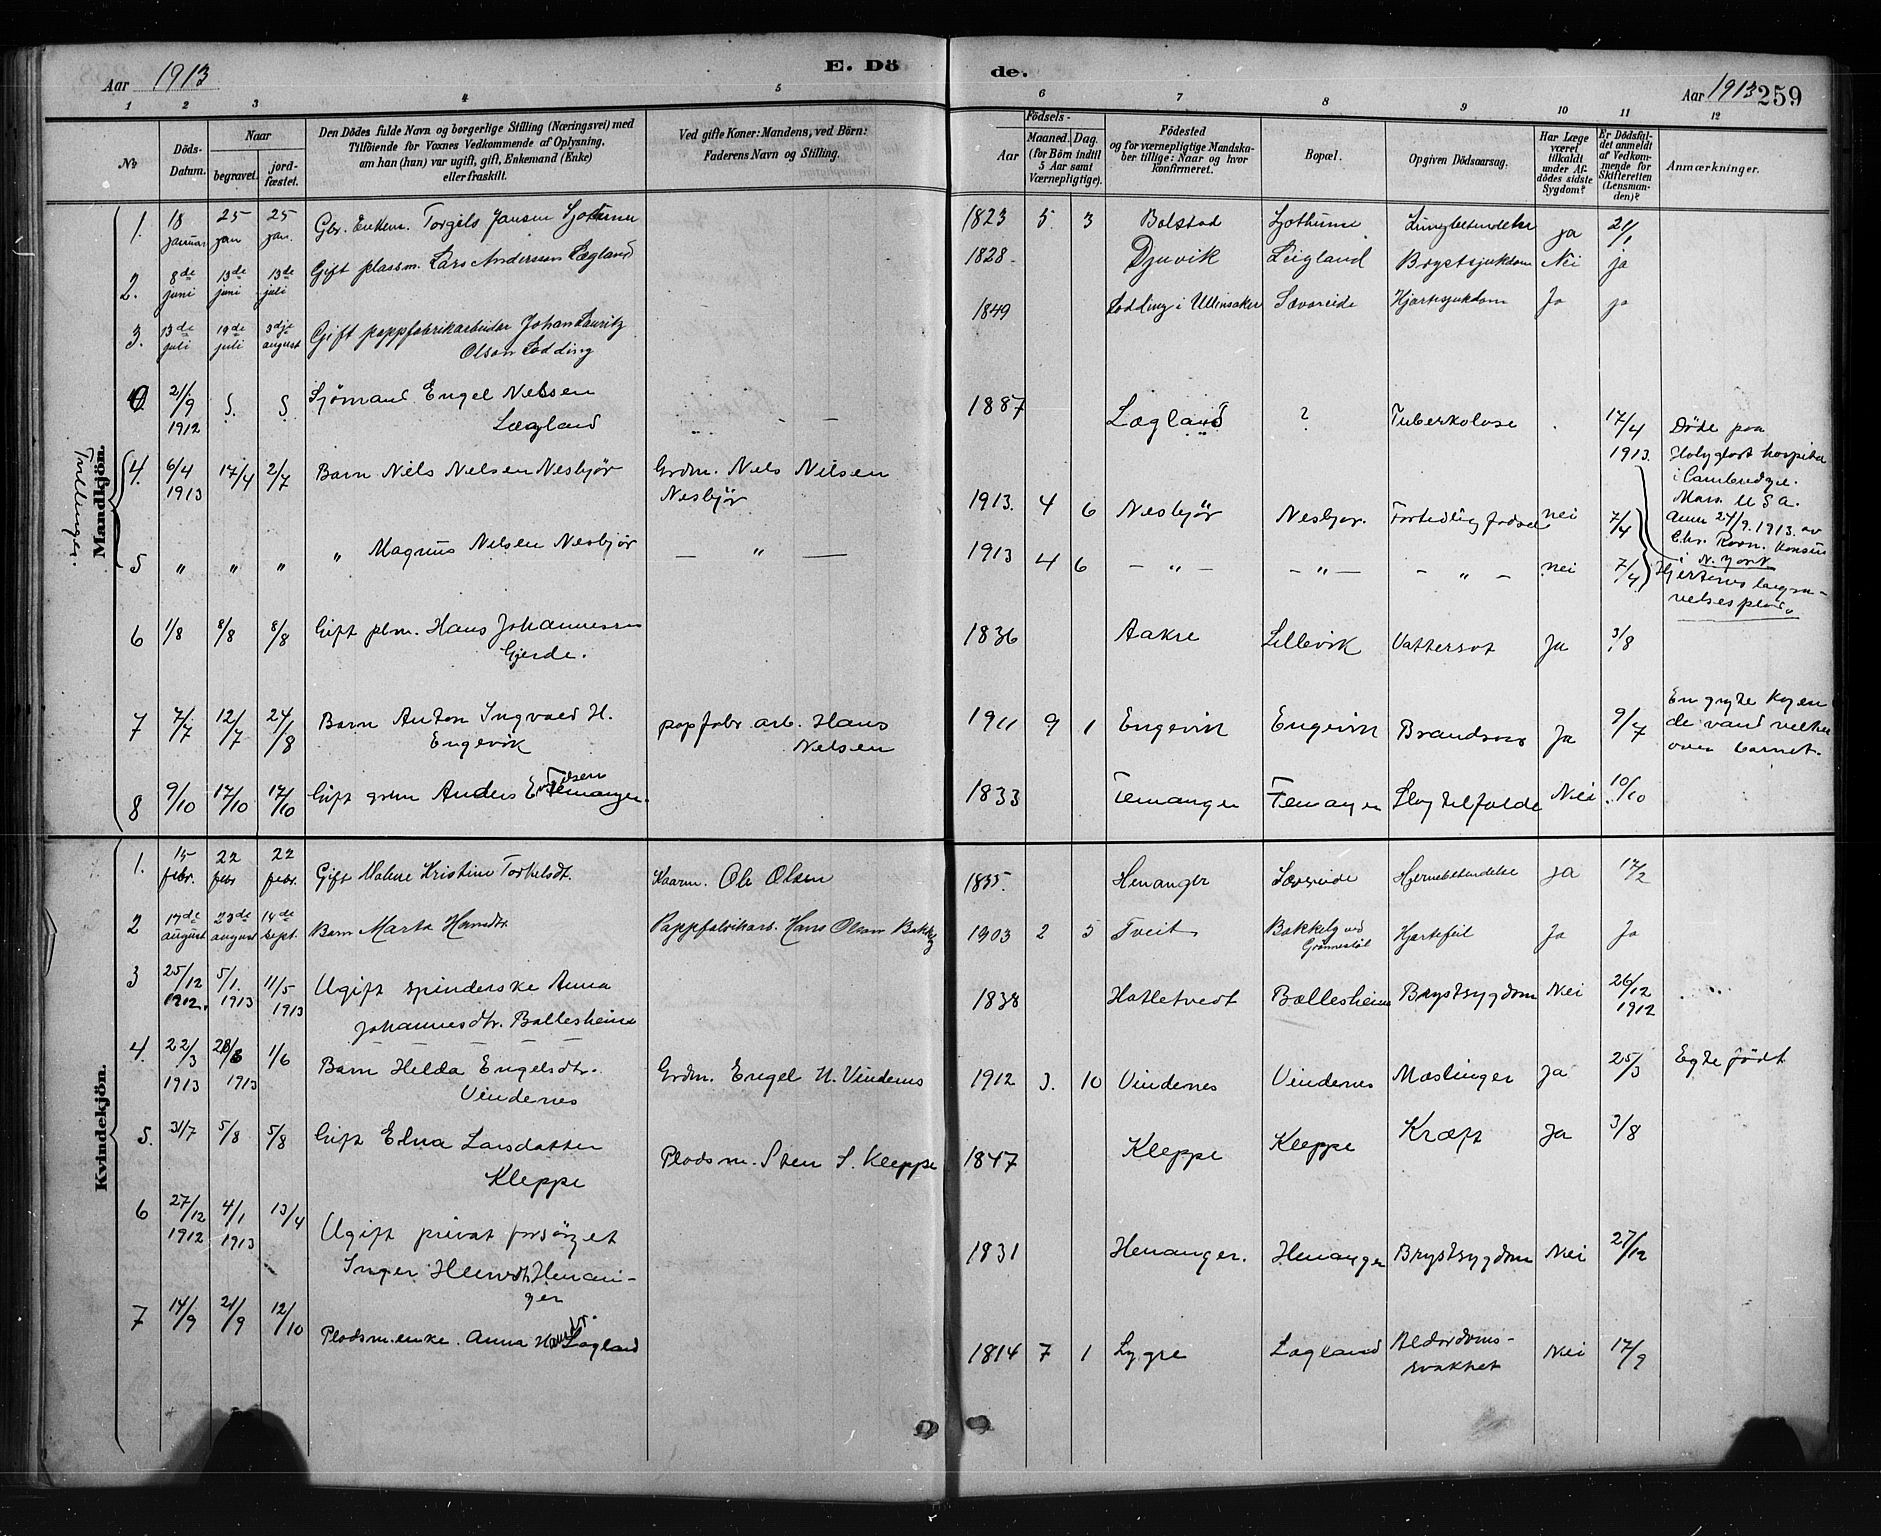 Aar 1913
E. Dö
de.
Aar 1913 259
1 2 3 4 5 6 7 8 9 10 11 12
No
Döds-Datum.
Naar
begravet.
jordfæstet.
Den Dödes fulde Navn og borgerlige Stilling (Næringsvei) med
Tilföiende for Voxnes Vedkommende af Oplysning,
om han (hun) var ugift, gift, Enkemand (Enke)
eller fraskilt.
Ved gifte Koner: Mandens, ved Börn:
Faderens Navn og Stilling.
Födsels-
Aar
Maaned. Dag.
(for Börn indtil
5 Aar samt
Værnepligtige).
Födested
og for værnepligtige Mandska-
ber tillige: Naar og hvor
konfirmeret.
Bopæl.
Opgiven Dödsaarsag.
Har Læge
været
tilkaldt
under Af-
dödes sidste
Sygdom?
Er Dödsfal-
det anmeldt
af Vedkom-
mende for
Skifteretten
(Lensman-
den)?
Anmærkninger.
Mandkjön.
Tvillinger.
1. 18 januar 25 jan 25 jan. Gbr. Enkem. Torgils Jansen 1823 5. 3 Bolstad Ljothuune Lungbetendelse ja 21/1
2. 8de juni 13de juni 13de juli Gift plassm. Lars Anderssen Lægland 1828 Djuvik Brystsjukdom Nei ja
3. 13de juli 19de juli 3dje august Gift pappfabrikarbeider Johan Lauritz
Olson Lodding 1849 Lodding i Ullensaker Sævareide Hjartesjukdom Ja ja
21/9 1912 S. S Sjömand Engel Nelsen
Lægland - - 1887 Lægland ? Tuberkolose 17/4 1913. Døde paa
Holyghost hospital
i Cambridge.
Mass. U S A.
Anm 24/9. 1913. av
Chr. Ravn. Konsul
i N. york
4. 6/4 1913 17/4 2/7 Barn Nils Nelsen Nesbjör Grdm. Nels Nilsen
Nesbjör 1913. 4 6 Nesbjör Nesbjor. Fortidlig fødsel nei 7/4
5 " " " " Magnus Nelsen Nesbjör — " — 1913 4 6 — " — — " — — " — nei 7/4
6 1/8 8/8 8/8 Gift plm. Hans Johannessen
Gjerde. 1836 Aakre Lillevik Vattersot Ja 3/8
7 7/7 12/7 24/8 Barn Anton Ingvald H.
Engevik papfabr. arb. Hans
Nelsen 1911 9 1 Engevik Engevik Brandsaar Ja 9/7 En gryte kogen
de vand veltet
over barnet.
8 9/10 17/10 17/10 Gift grdm Anders
Femanger. 1833 Femanger Femanger Nei 10/10
Kvindekjön.
1. 15 febr. 22 febr 22 febr. Gift Malene Kristine Torkelsdt. Kaarm. Ole Olsen 1835. Henanger Sævareide Hjernebetendelse ja 17/2
2 17de august 23de august 14de sept. Barn Marta Hansdtr Pappfabrikarb. Hans Olsen 1903 2 5 Tveit Bakkely ved
Grønnestøl Hjartefeil Ja Ja
3 25/12 1912. 5/1. 1913 11/5 1913 Ugift spinderske Anna
Johannesdtr. Ballesheim 1838 Hatletvedt Bællesheim Brystsygdom Nei 26/12 1912
4. 22/3 1913 1913 1/6 Barn Hilda Engelsdtr.
Vindenes Grdm. Engel N. Vindenes 1912 3. 10 Vindenes Vindenes Mæslinger Ja 25/3 Egte født
5. 31/7 5/8 5/8 Gift Elna Larsdatter
Kleppe Pladsm. Sten S. Kleppe 1847 Kleppe Kleppe Kræft Ja 3/8
6 27/12 1912 4/1 1913 13/4 Ugift privat forsørget
Inger Henan-
ger 1831 Henanger. Henanger Brystsygdom Nei 27/12
7 14/9 21/9 12/10 Pladsm.enke. Anna Hansdtr. Lægland 1814 7 1 Lygre Lægland Alderdoms-
svakhet Nei 17/9